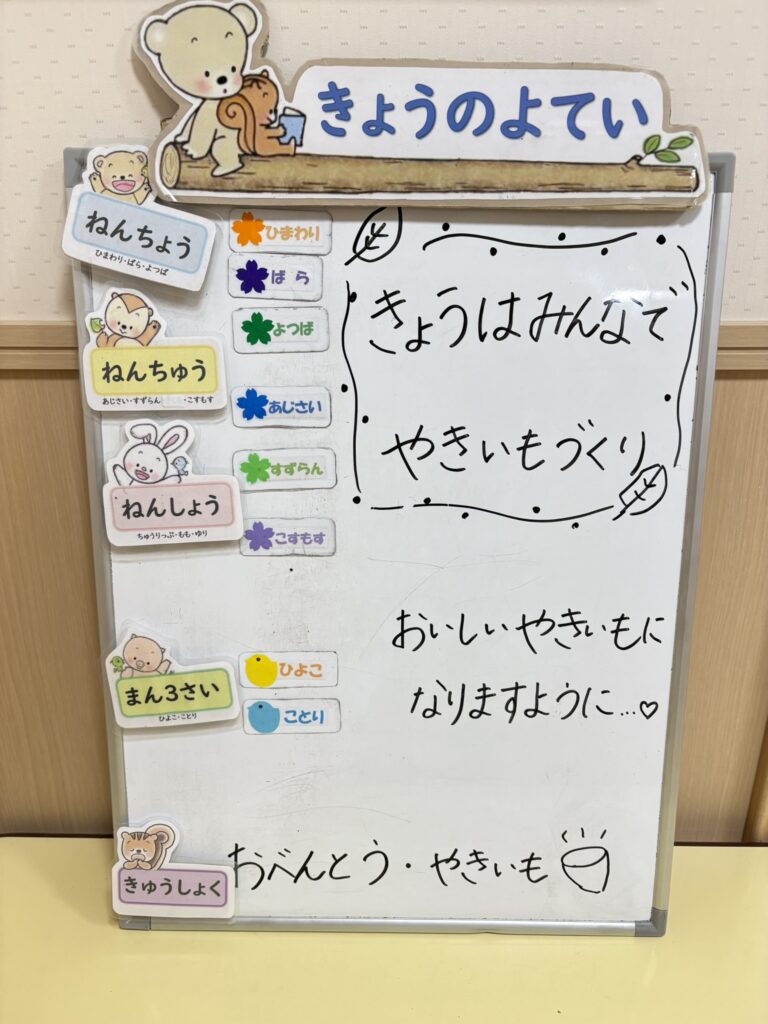 きょうのよてい
ねんちょう
ひまわり・ばら・よつば
ひまわり
ばら
よつば
きょうはみんなで
やきいもづくり
ねんちゅう
あじさい・すずらん ・こすもす
あじさい
すずらん
こすもす
ねんしょう
ちゅうりっぷ・もも・ゆり
おいしいやきいもに
なりますように…♡
まん3さい
ひよこ・ことり
ひよこ
ことり
きゅうしょく
おべんとう・やきいも